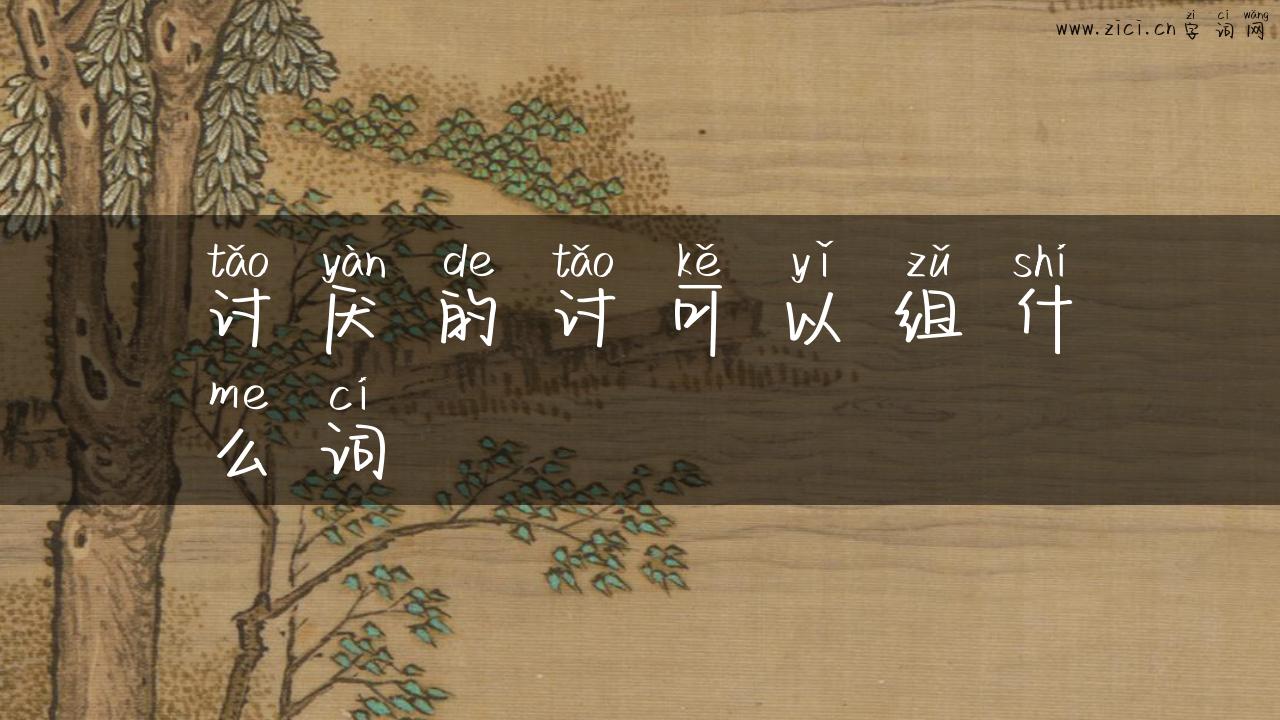 zì cí wǎng
www.zici.cn 字 词 网
tǎo yàn de tǎo kě yǐ zǔ shí
讨 厌 的 讨 可 以 组 什
me cí
么 词